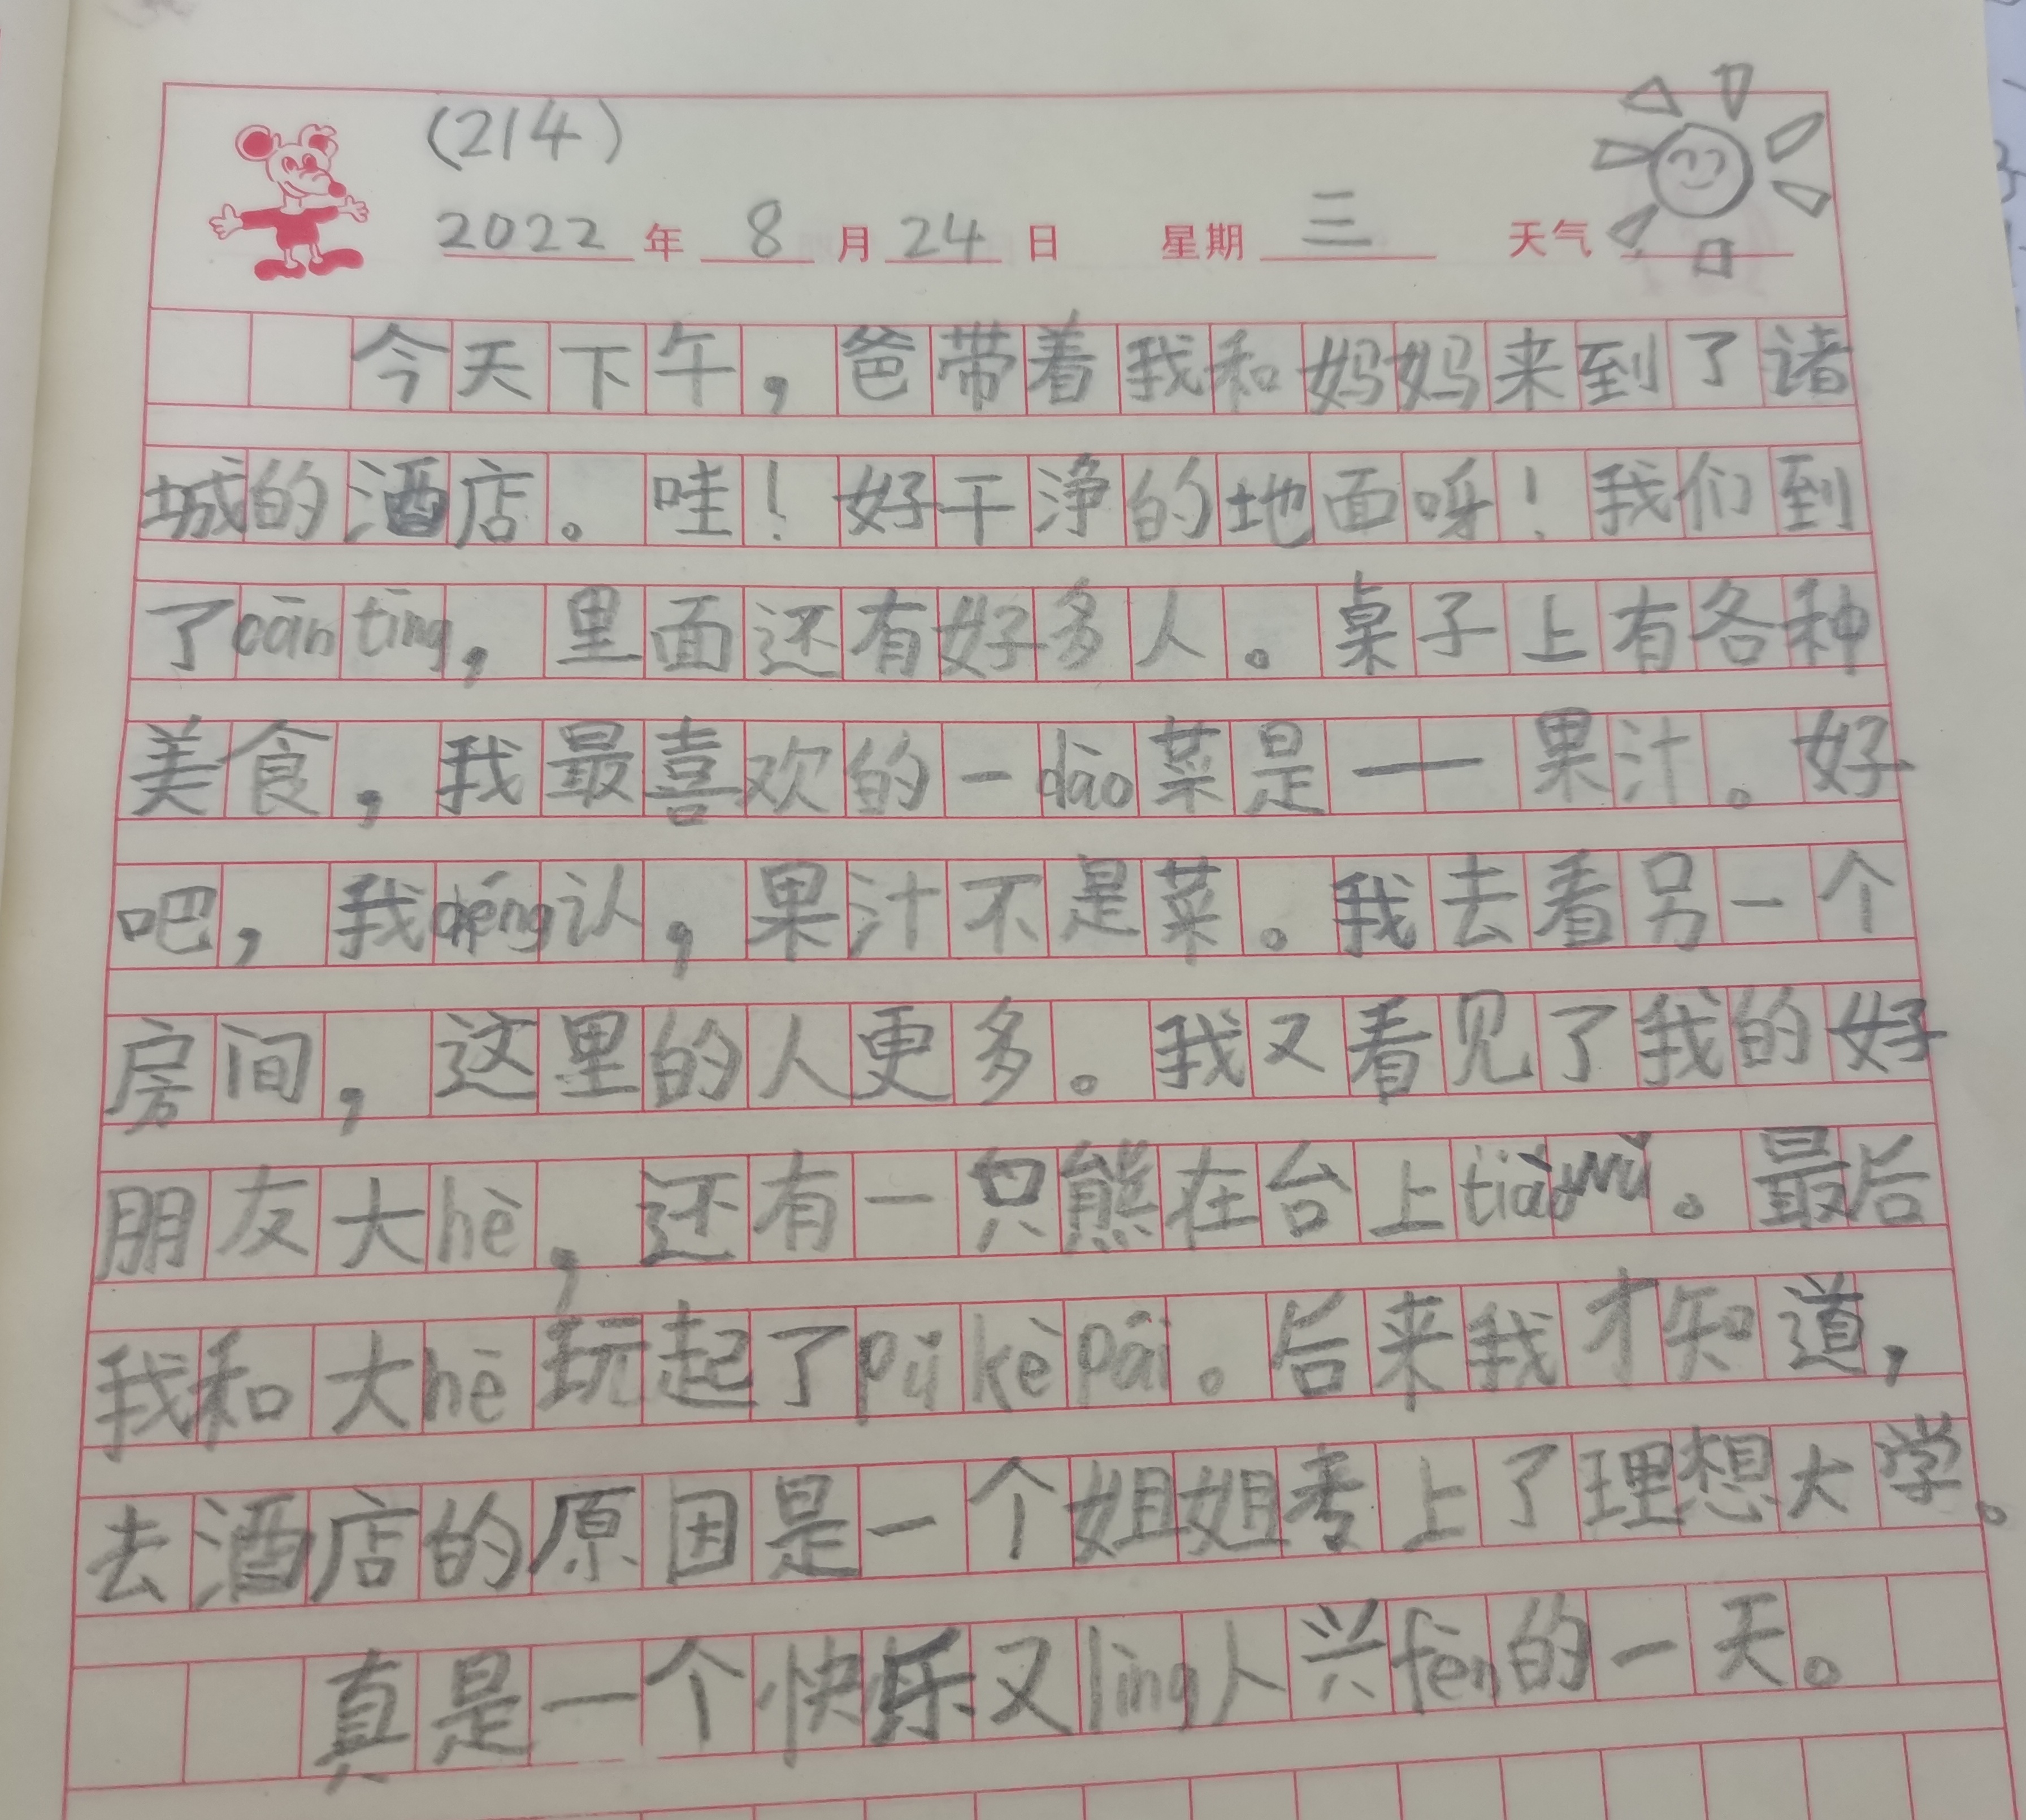 (214)
2022年8月24日 星期三 天气
今天下午，爸带着我和妈妈来到了诸
城的酒店。哇！好干净的地面呀！我们到
了cān tīng，里面还有好多人。桌子上有各种
美食，我最喜欢的一dào菜是——果汁。好
吧，我chéng认，果汁不是菜。我去看另一个
房间，这里的人更多。我又看见了我的好
朋友大hè，还有一只熊在台上tiàowǔ。最后
我和大hè玩起了pū kè pái。后来我才知道，
去酒店的原因是一个姐姐考上了理想大学。
真是一个快乐又lìng人兴fèn的一天。